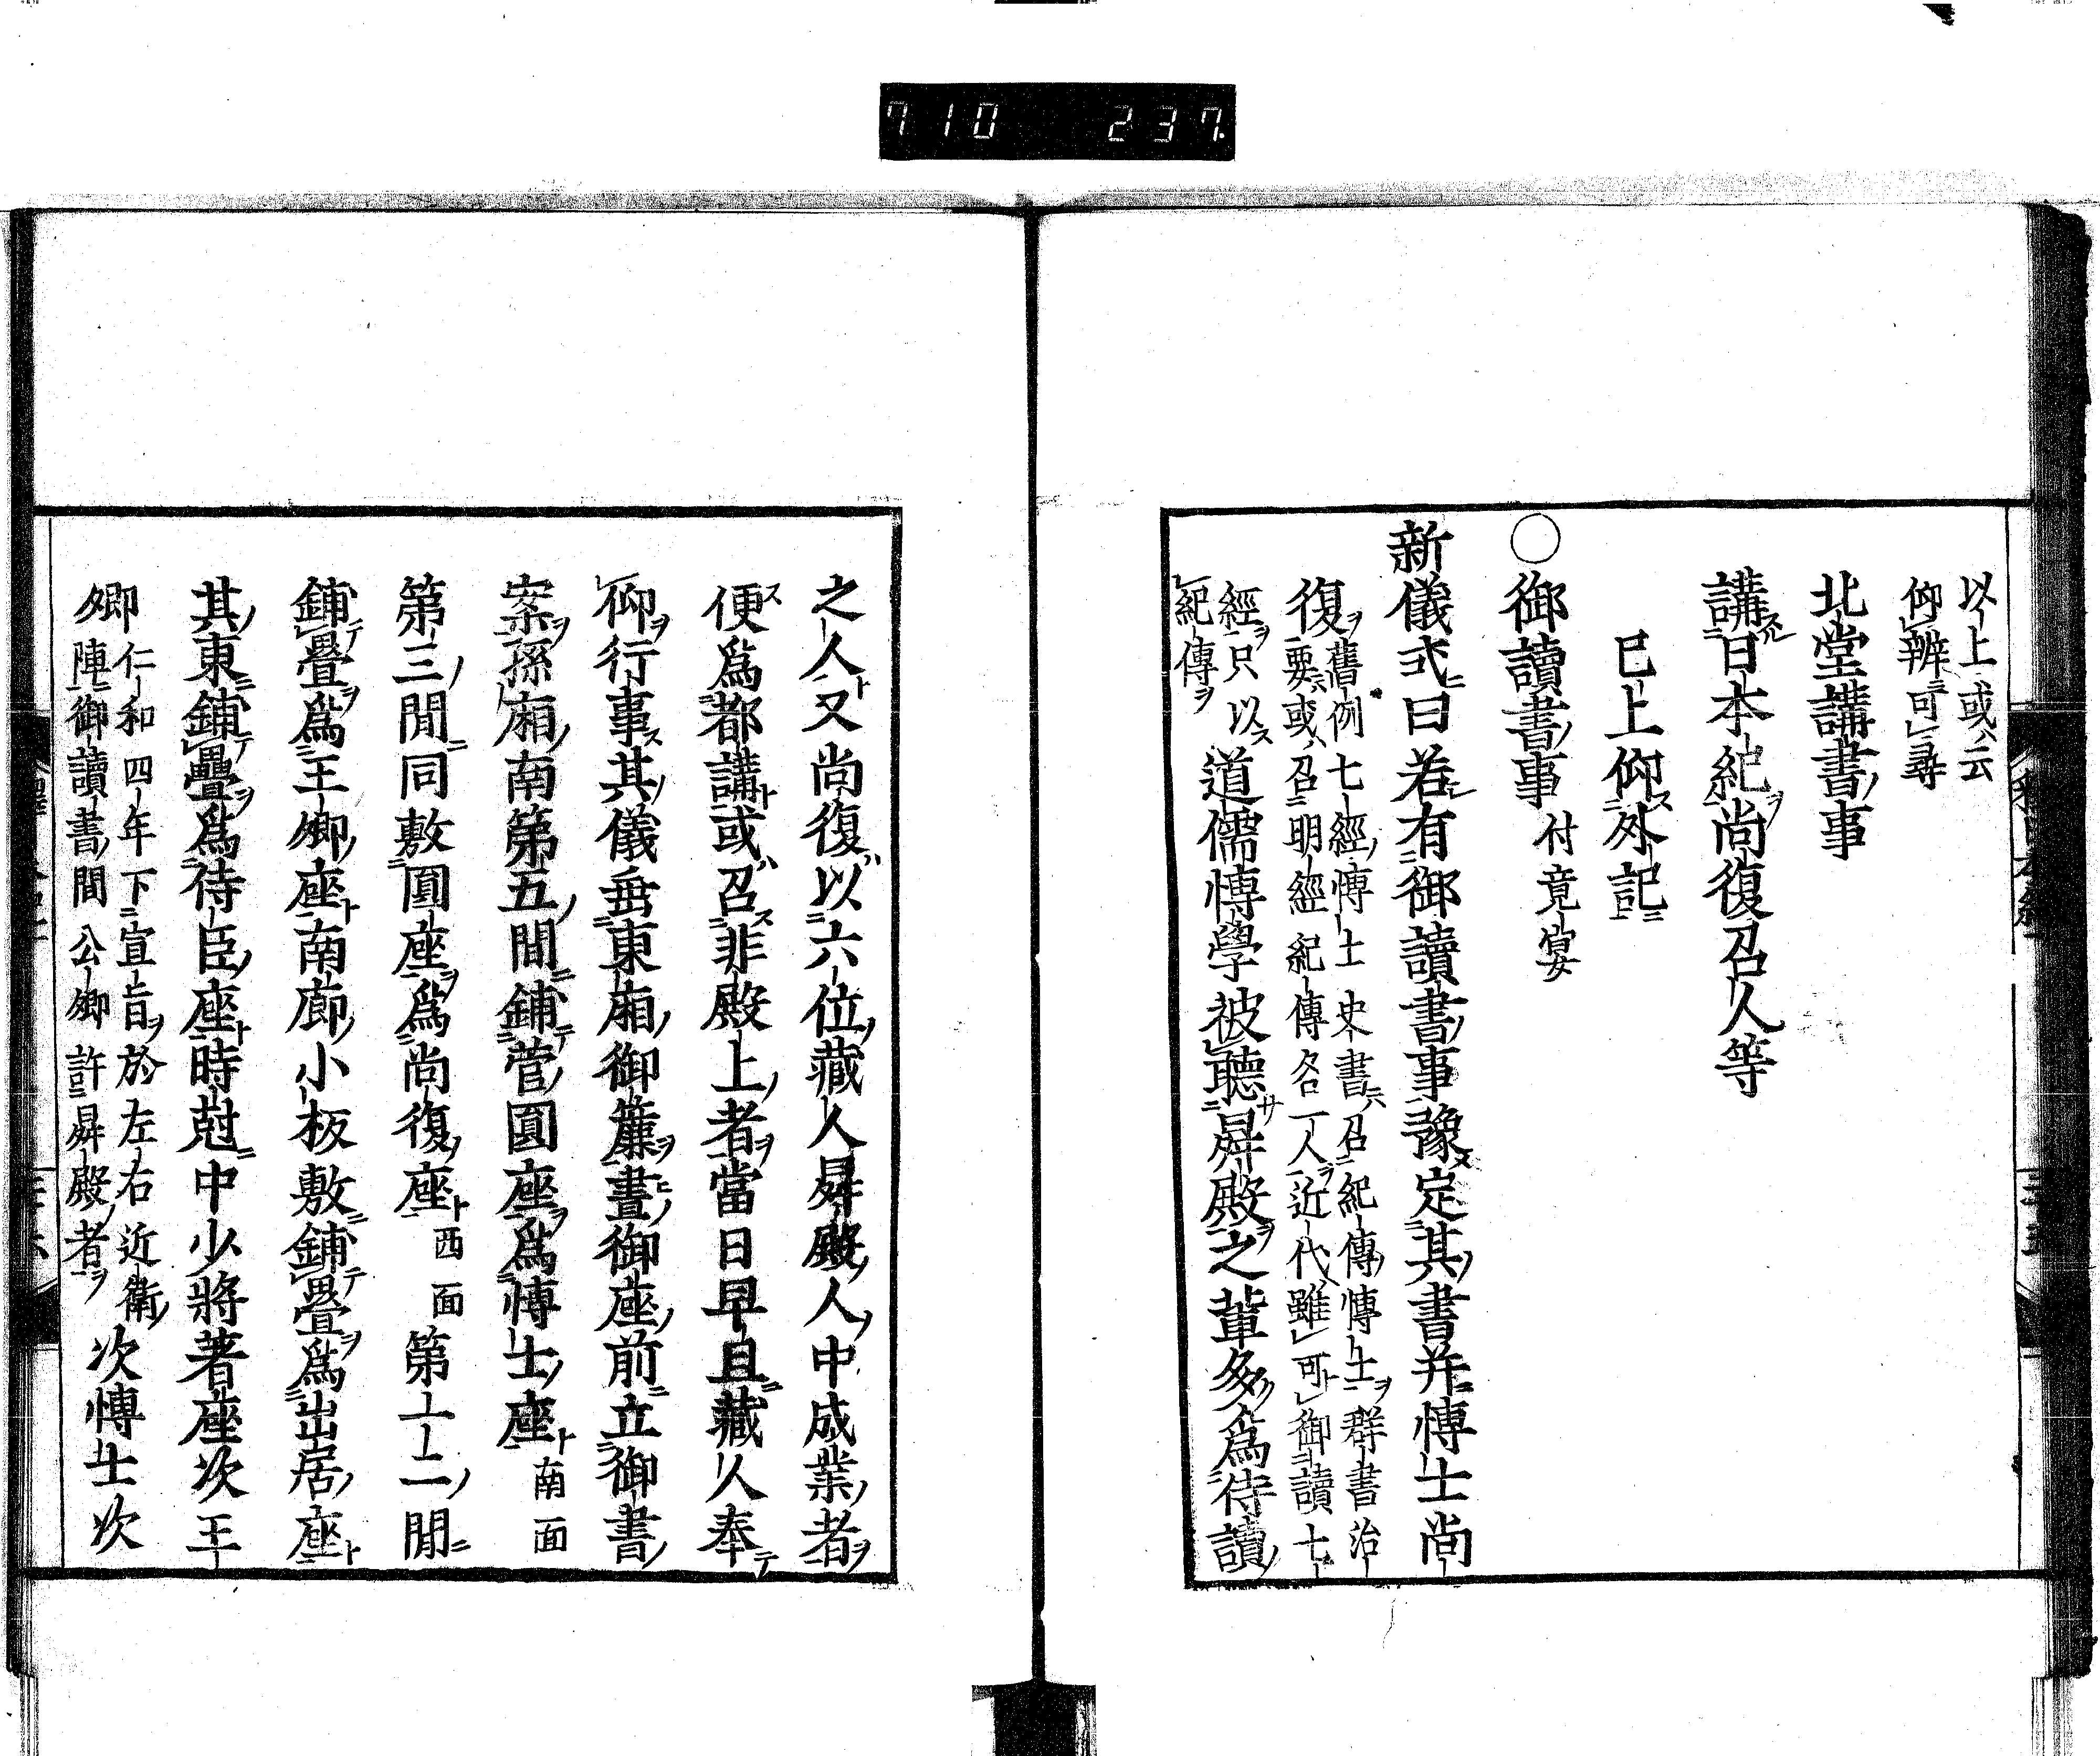 710 237.
以上或云
仰辨可尋
北堂講書事
講日本紀尚復召人等
已上仰外記
○御讀書事 付竟宴
新儀式曰若有御讀書事豫定其書并博士尚
復 舊例七經博士史書召紀傳博士群書治
要或召明經紀傳各一人近代雖可御讀七
經只以
紀傳 道儒博學被聽昇殿之輩多爲待讀
之人又尚復以六位藏人昇殿人中成業者
便爲都講或召非殿上者當日早旦藏人奉
仰行事其儀垂東廂御簾晝御座前立御書
案孫廂南第五間鋪菅圓座爲博士座 南面
第三間同敷圓座爲尚復座 西面 第十二間
鋪疊爲王卿座南廊小板敷鋪疊爲出居座
其東鋪疊爲待臣座時尅中少將著座次王
卿 仁和四年下宣旨於左右近衛
陣御讀書間公卿許昇殿者 次博士次